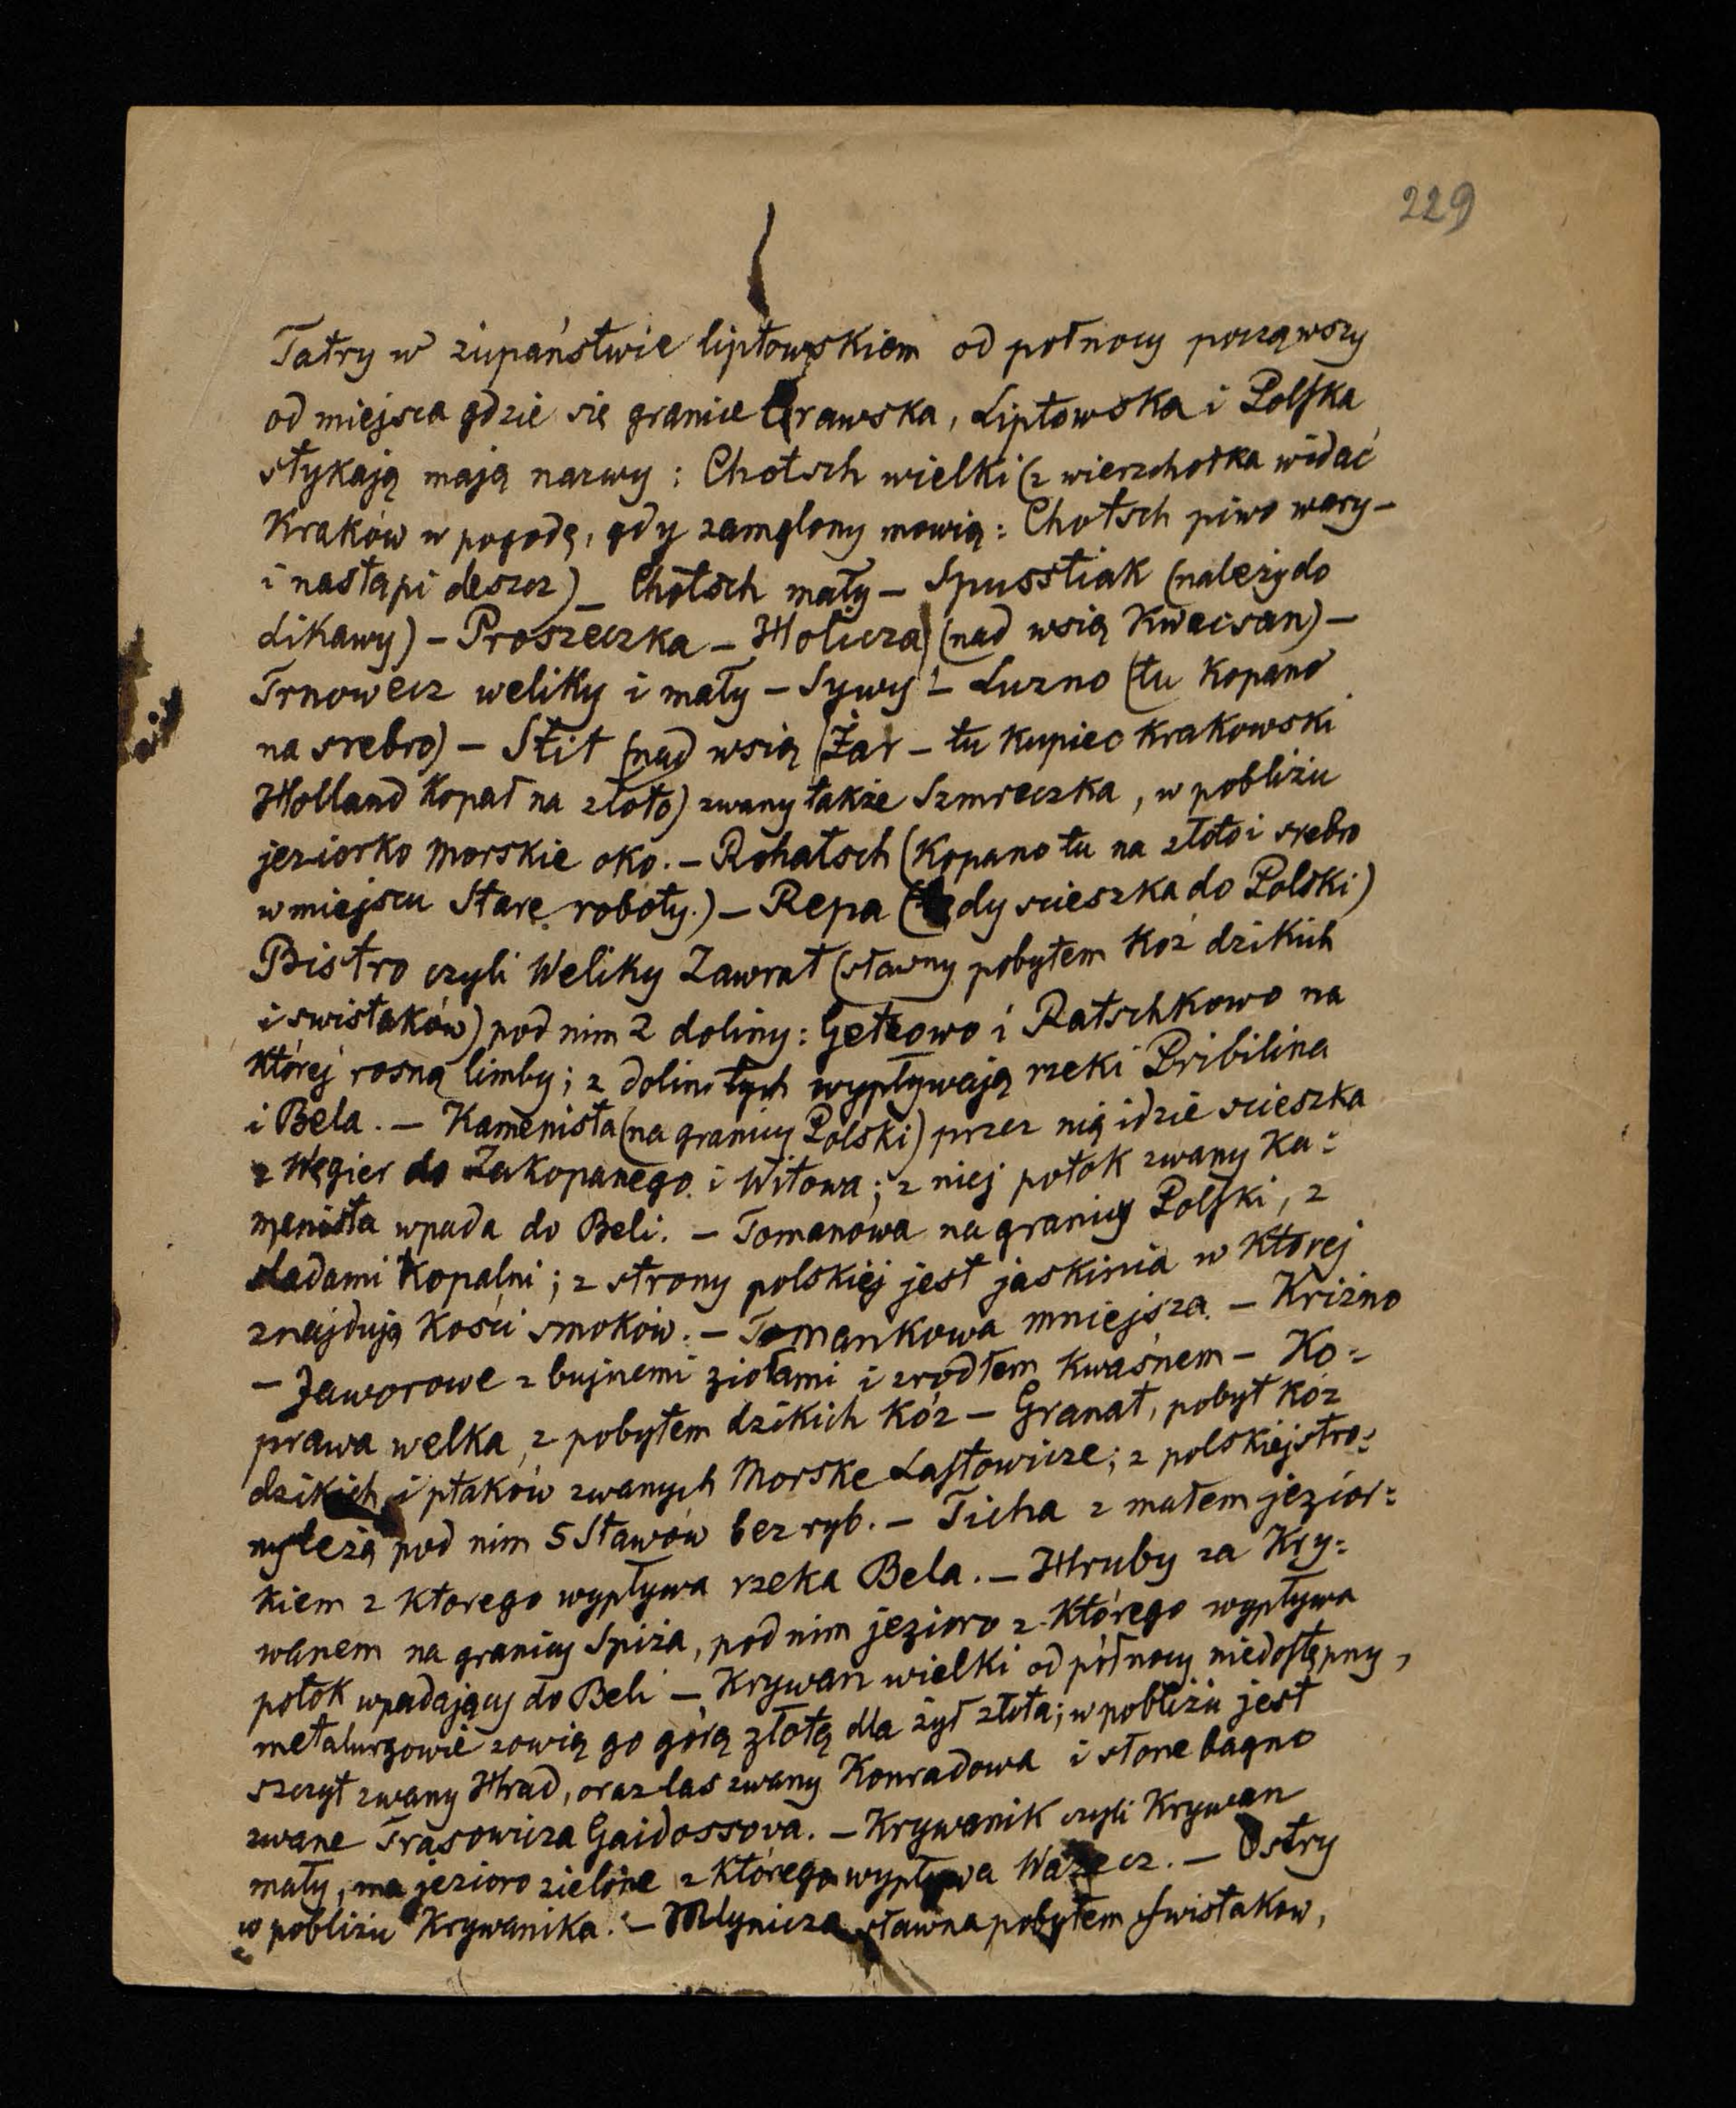 229
Tatry w żupaństwie liptowskiem od połnocy począwszy
od miejsca gdzie się granice Orawska, Liptowska i Polska
stykają mają nazwy : Chotsch wielki (z wierzchołka widać
Kraków w pogodę, gdy zamglony mowią : Chotsch piwo wary –
i nastąpi deszcz) – Chotsch mały – Spusstiak (należy do
Likawy) – Proszeczka – Holicza (nad wsią Kwacsan) –
Trnowecz weliky i mały – Sywy – Luzno (tu kopano
na srebro) – Stit (nad wsią Żar – tu kupiec krakowski
Holland kopał na złoto) zwany także Szmreczka, w pobliżu
jeziorko morskie oko. – Rohatsch (kopano tu na złoto i srebro
w miejscu Stare roboty.) – Repa (tędy scieszka do Polski)
Bistro czyli Weliky Zawrat (sławny pobytem kóz dzikich
i swistaków) pod nim 2 doliny : Geteowo i Ratschkowo na
której rosną limby ; z dolin tych wypływają rzeki Pribilina
i Bela. – Kamenista (na granicy Polski) przez nią idzie scieszka
z Węgier do Zakopanego i Witowa ; z niej potok zwany Ka=
menista wpada do Beli. – Tomanowa na granicy Polski, z
sladami kopalni ; z strony polskiej jest jaskinia w której
znajdują kości smoków. – Tomankowa mniejsza. – Kriżno
– Jaworowe z bujnemi ziołami i zrodłem kwaśnem – Ko=
prawa welka, z pobytem dzikich kóz – Granat, pobyt kóz
dzikich i ptaków zwanych Morske Lastowicze ; z polskiej stro=
ny leżą pod nim 5 Stawów bez ryb. – Ticha z małem jezior=
kiem z ktorego wypływa rzeka Bela. – Hruby za Kry=
wanem na granicy Spiża, pod nim jezioro z którego wypływa
potok wpadający do Beli – Krywan wielki od północy niedostępny,
metalurgowie zowią go górą złotą dla żył złota ; w pobliżu jest
szczyt zwany Hrad, oraz las zwany Konradowa i słone bagno
zwane Trasowicza Gaidossova. – Krywanik czyli Krywan
mały, ma jezioro zielone z którego wypływa Wazecz. – Ostry
w pobliżu Krywanika. – Mlynicza sławna pobytem swistakow,